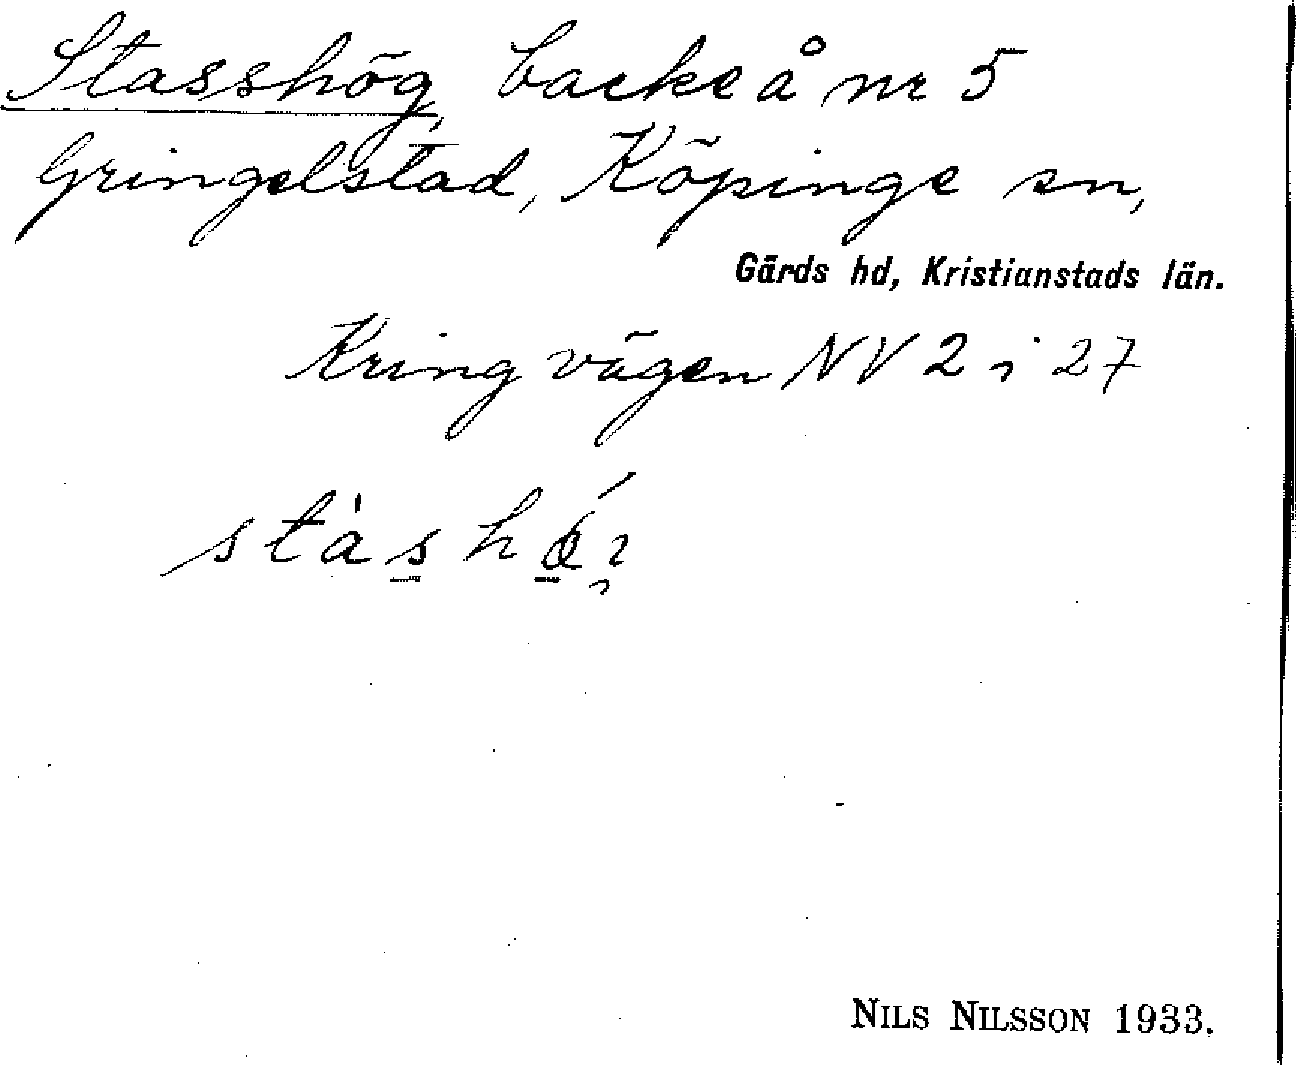 Stasshög, backe å nr 5
Gringelstad, Köpinge sn,
Gärds hd, Kristianstads län.
Kring vägen NV 2 i 27
NILS NILSSON 1933.